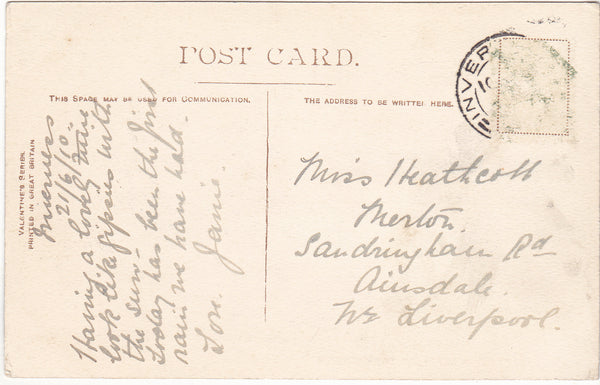 POST CARD.
THIS SPACE MAY BE USED FOR COMMUNICATION.
THE ADDRESS TO BE WRITTEN HERE.
VALENTINE'S SERIES.
PRINTED IN GREAT BRITAIN
INVER
Inverness
21/6/10.
Having a lovely time
look like gipsies with
the sun-
today has been the first
rain we have had.
Love. Janie.
Miss Heathcott
Merton.
Sandringham Rd
Ainsdale.
Nr Liverpool.